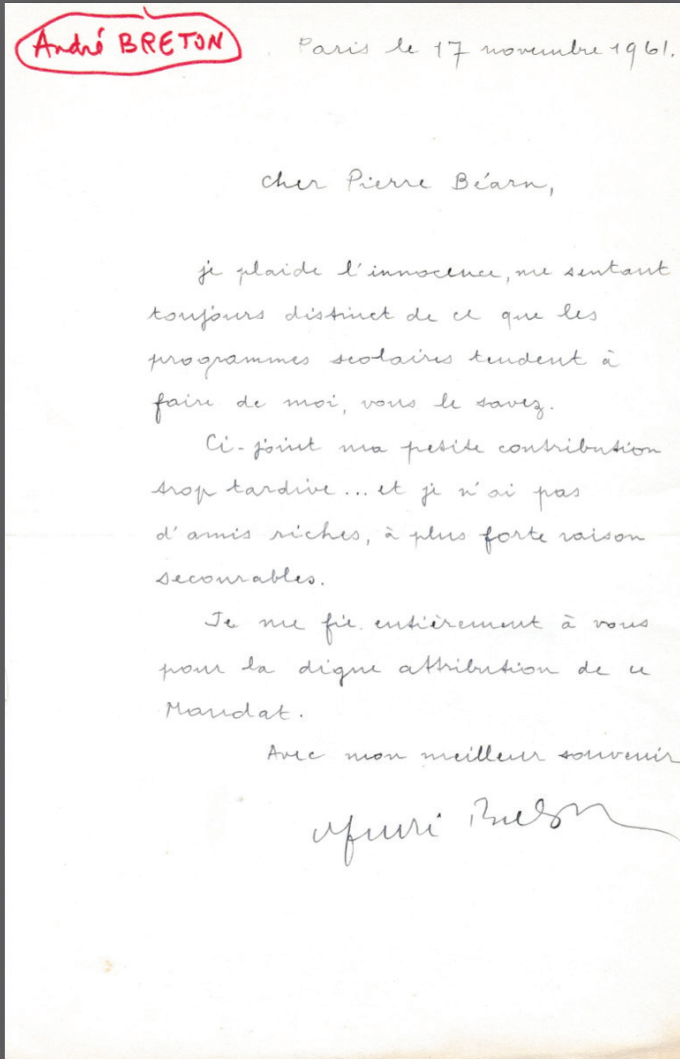 André BRETON
Paris le 17 novembre 1961.
Cher Pierre Béarn,
je plaide l'innocence, me sentant
toujours distinct de ce que les
programmes scolaires tendent à
faire de moi, vous le savez.
Ci-joint ma petite contribution
trop tardive... et je n'ai pas
d'amis riches, à plus forte raison
secourables.
Je me fie entièrement à vous
pour la digne attribution de ce
Mandat.
Avec mon meilleur souvenir
André Breton